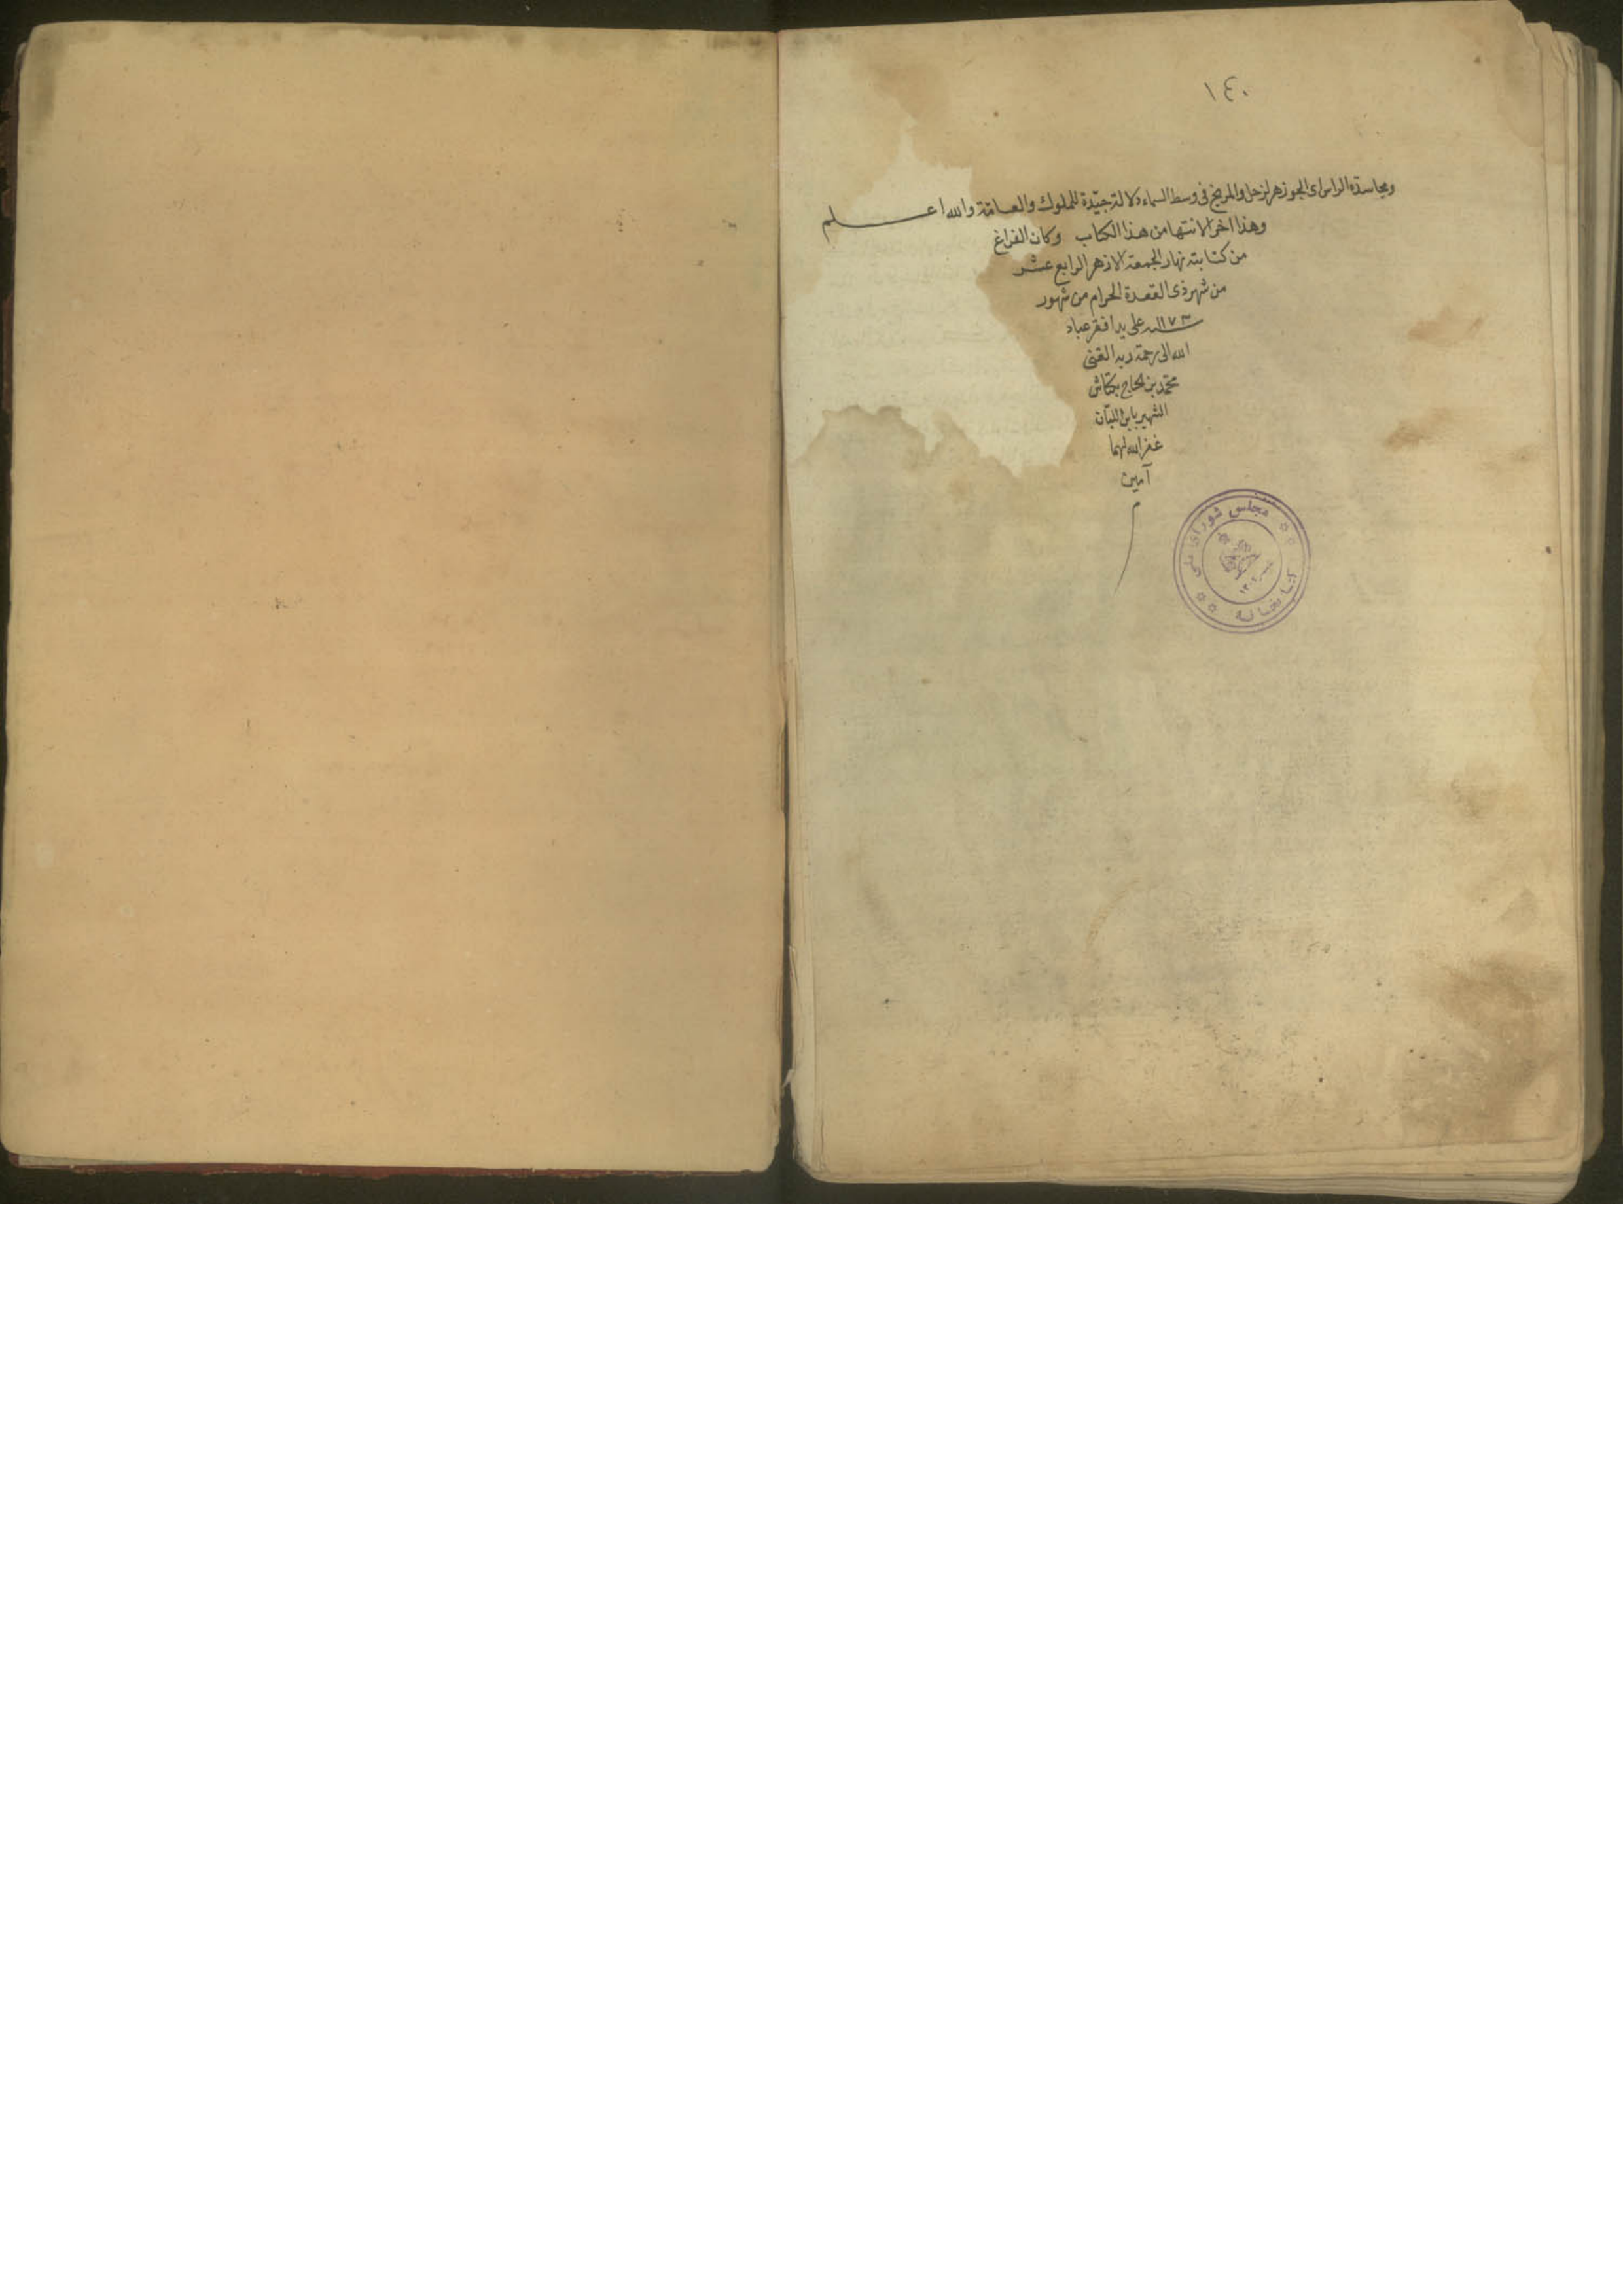 ١٤٠
ومجاسدة الراس اى الجوزهر لزحل والمريخ فى وسط السماء دلالة جيّدة للملوك والعامّة والله اعلم
وهذا اخر الانتها من هذا الكتاب وكان الفراغ
من كتابته نهار الجمعة الازهر الرابع عشر
من شهر ذى القعدة الحرام من شهور
سنة ١١٧٣ على يد افقر عباد
الله الى رحمة ربه الغنى
محمّد بن الحاج بكتاش
الشهير بابن اللبّان
غفر الله لهما
آمين
م
مجلس شورای ملی
کتابخانه